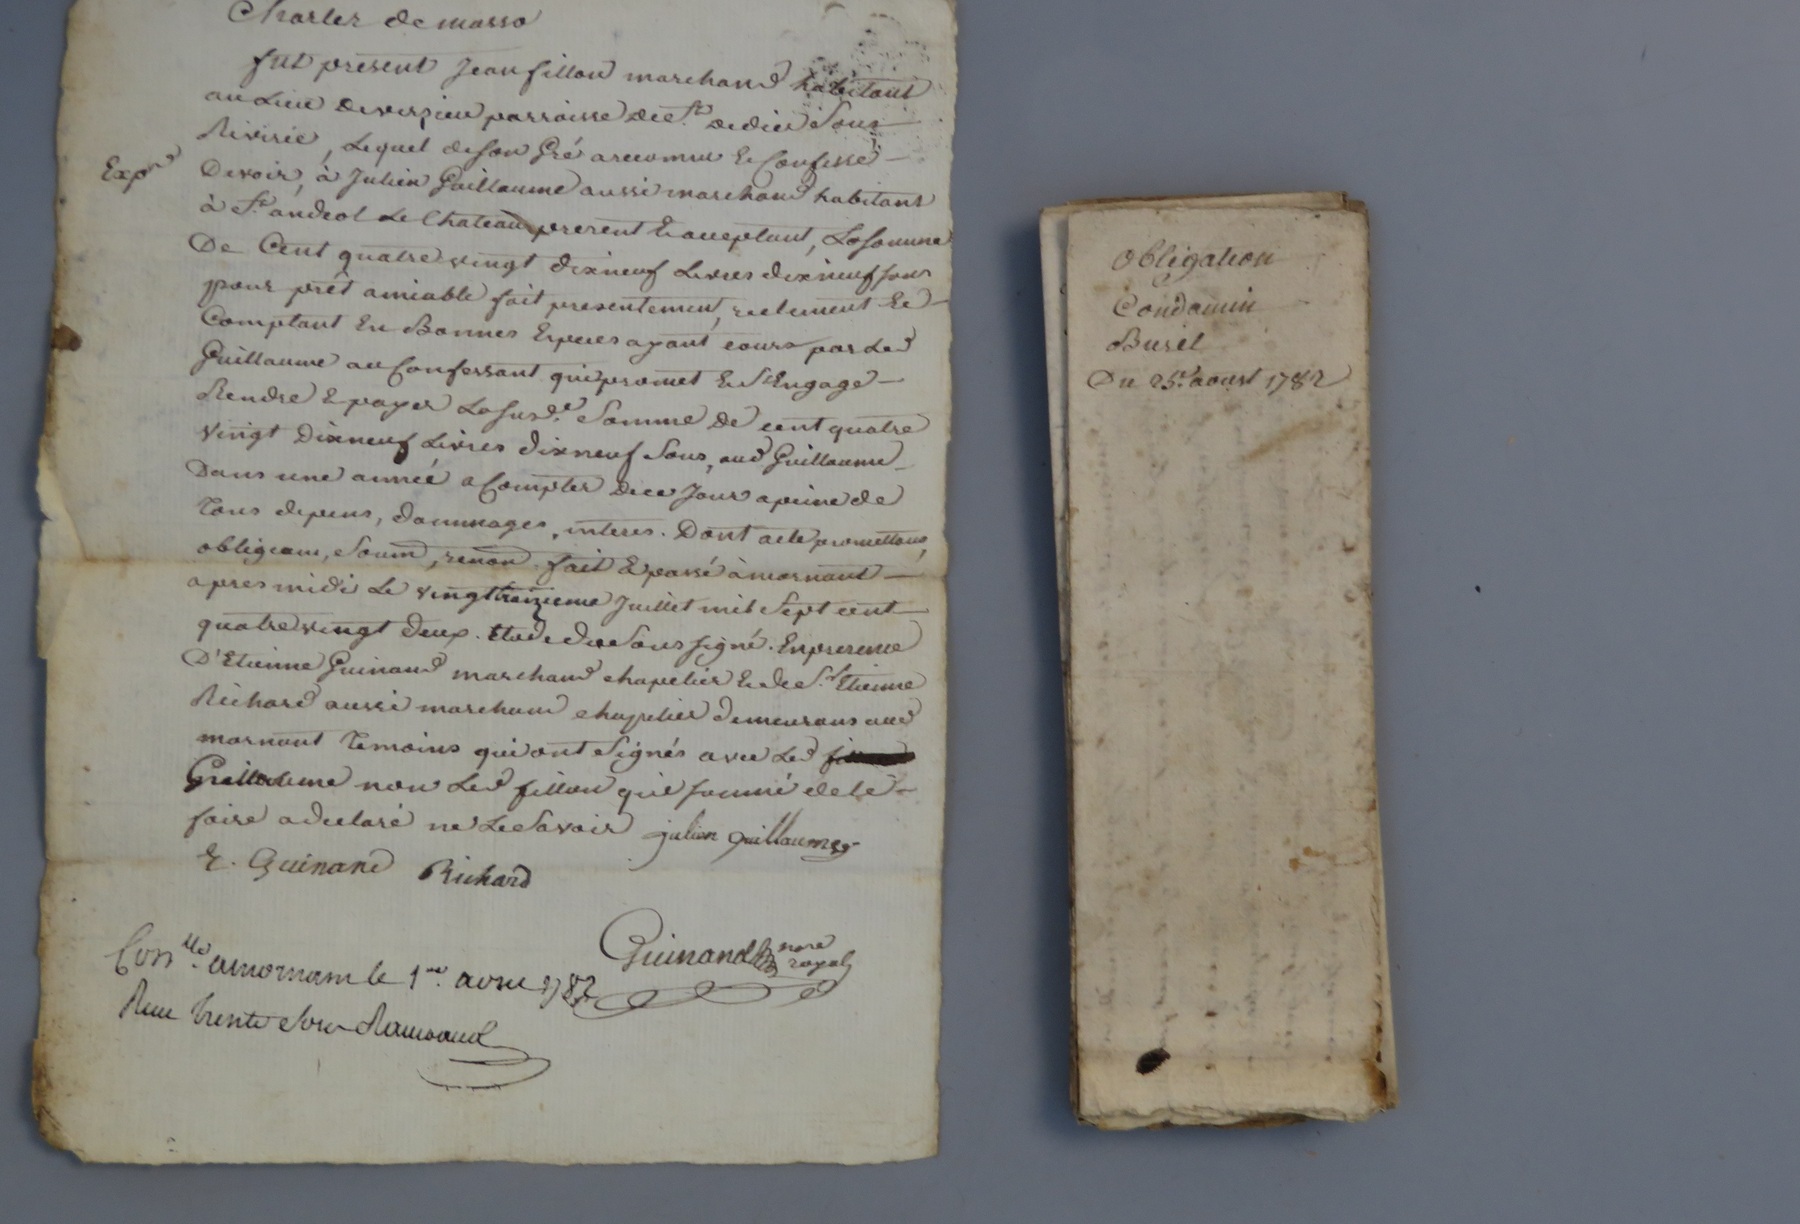 Charles de masso
fut présent Jean fillon marchand habitant
au Lieu de verzieu parroisse de St. didier Sous
Rivirie, Lequel de son Gré a reconnu & Confessé
Expnd
Devoir, à Julien Guillaume aussi marchand habitant
à St. andeol Le Chateau present & acceptant, La somme
De Cent quatre vingt dixneuf Livres dixneuf sous
pour prêt amiable fait presentement, reelement &
Comptant En Bonnes Especes ayant cours par Led
Guillaume au Confessant qui promet & S'Engage
Rendre & payer La susde. Somme de cent quatre
vingt Dixneuf Livres dixneuf Sous, aud Guillaume
Dans une année a Compter de ce Jour a peine de
Tous depens, dommages, interes. Dont acte promettans,
obligeans, Soumd, renond. fait & passé à mornant
apres midi Le vingt troizieme Juillet mil Sept cent
quatre vingt deux. Etude du Soussigné. En presence
D'Etienne Guinand marchand chapelier & de Sr. Etienne
Richard aussi marchand chapelier demeurans aud
mornant Temoins qui ont Signés avec Led
Guillaume non Led fillon qui sommé de le
faire a declaré ne Le Savoir julien guillaume
E. Guinand Richard
Guinand nore
royal
Conlle. a mornant le 1er. 1782
Recu trente Sous
Obligation
Condamin
Burel
Du 25e. aoust 1782